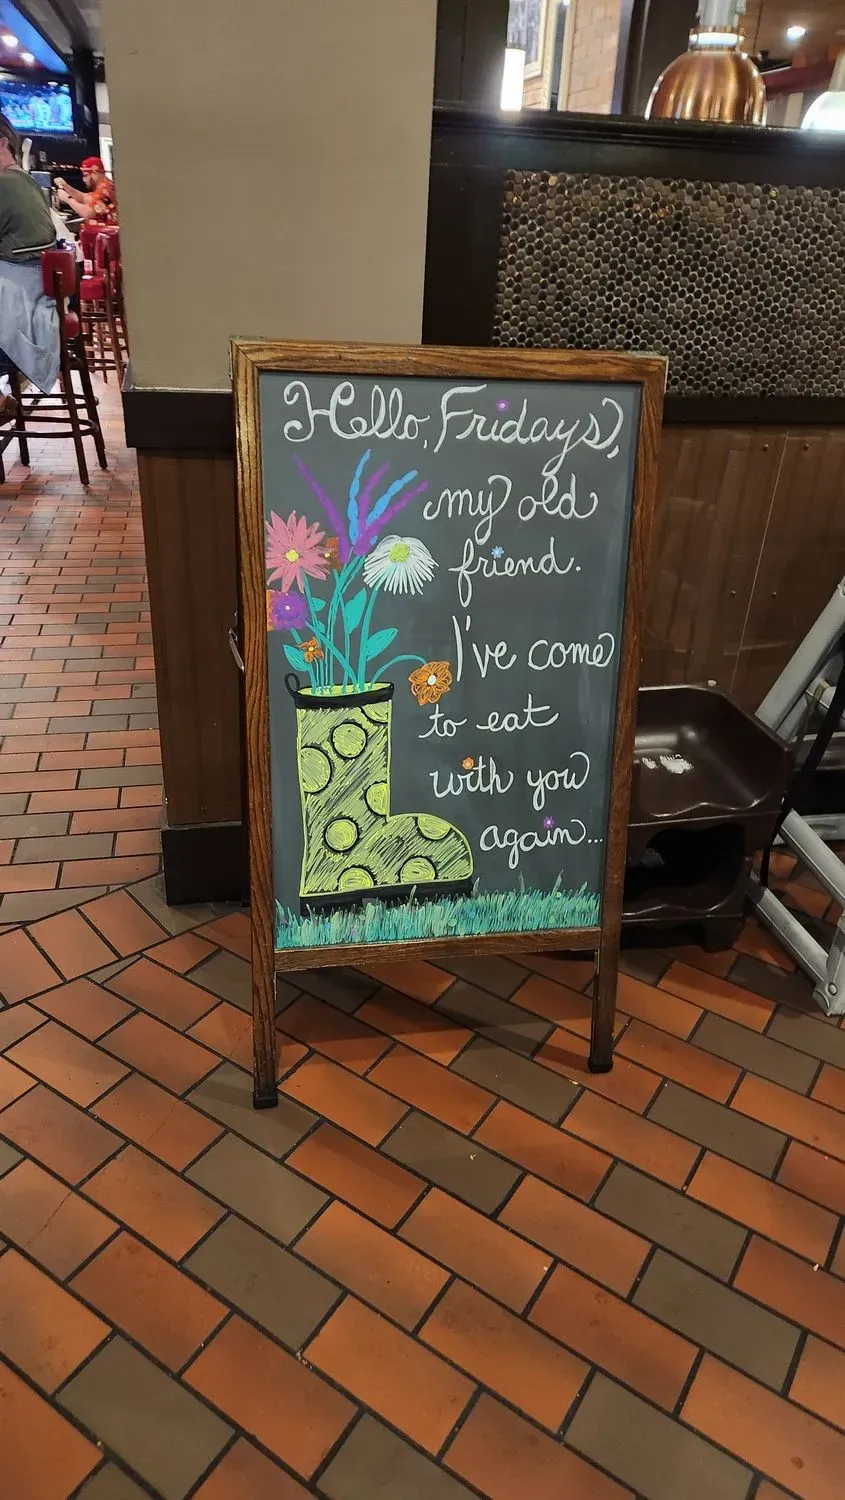 Hello, Fridays,
my old
friend.
I've come
to eat
with you
again...